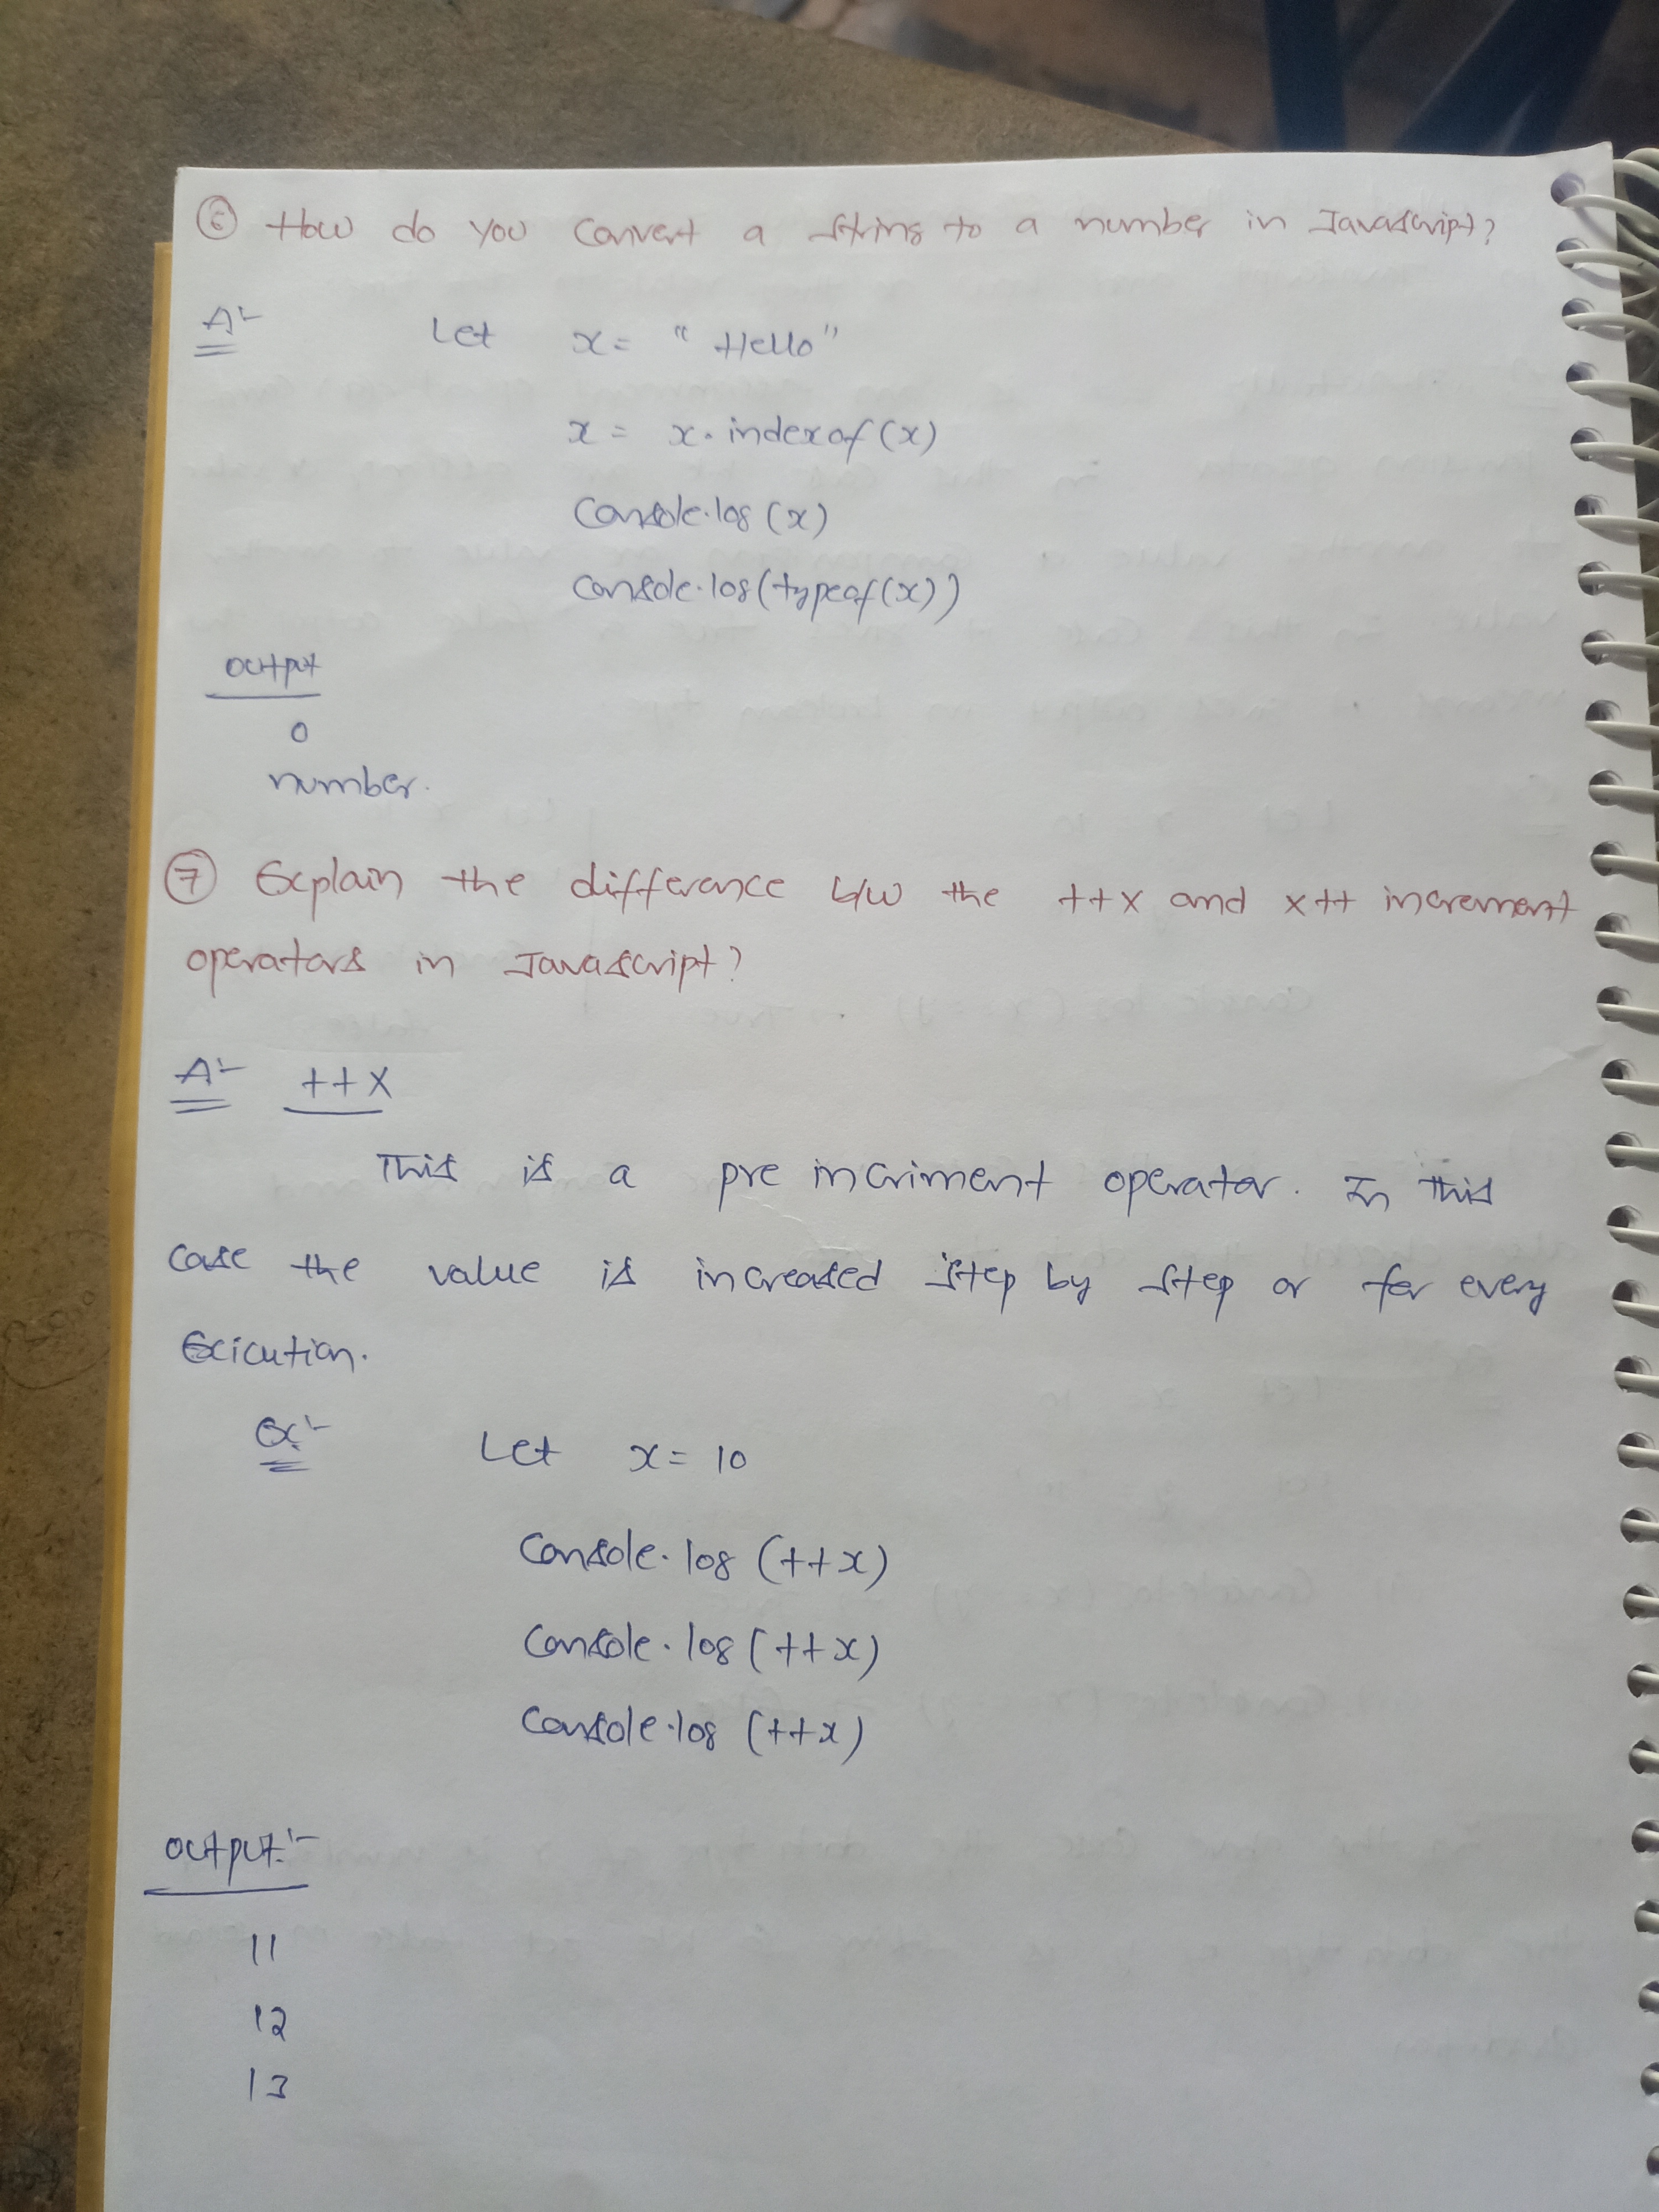 ⑥ How do you convert a string to a number in Javascript?
A:- Let x = "Hello"
x = x.indexof(x)
Console.log(x)
Console.log(typeof(x))
output
0
number.
⑦ Explain the difference b/w the ++x and x++ increment
operators in Javascript?
A:- ++x
This is a pre incriment operator. In this
case the value is increased step by step or for every
Exicution.
Ex:- Let x = 10
Console.log(++x)
Console.log(++x)
Console.log(++x)
output:-
11
12
13